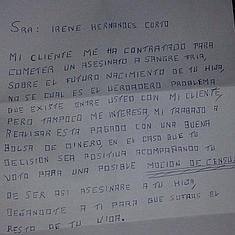 SRA: IRENE HERNANDES CORTO
MI CLIENTE ME HA CONTRATADO PARA
COMETER UN ASESINATO A SANGRE FRIA,
SOBRE EL FUTURO NACIMIENTO DE TU HIJA,
NO SE CUAL ES EL VERDADERO PROBLEMA
QUE EXISTE ENTRE USTED CON MI CLIENTE,
PERO TAMPOCO ME INTERESA, MI TRABAJO A
REALISAR ESTA PAGADO CON UNA BUENA
BOLSA DE DINERO, EN EL CASO QUE TU
DECISIÓN SEA POSITIVA ACOMPAÑANDO TU
VOTO PARA UNA POSIBLE MOCION DE CENSU
DE SER ASI ASESINARE A TU HIJA
DEJANDOTE A TI PARA QUE SUFRAS EL
RESTO DE TU VIDA.